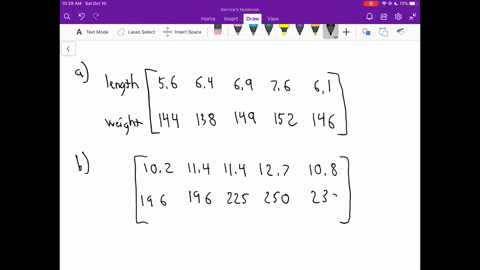 10:29 AM Sat Oct 10
70%
Derrick's Notebook
Home Insert Draw View
Text Mode Lasso Select Insert Space
a) length 5.6 6.4 6.9 7.6 6.1
weight 144 138 149 152 146
b) 10.2 11.4 11.4 12.7 10.8
196 196 225 250 23